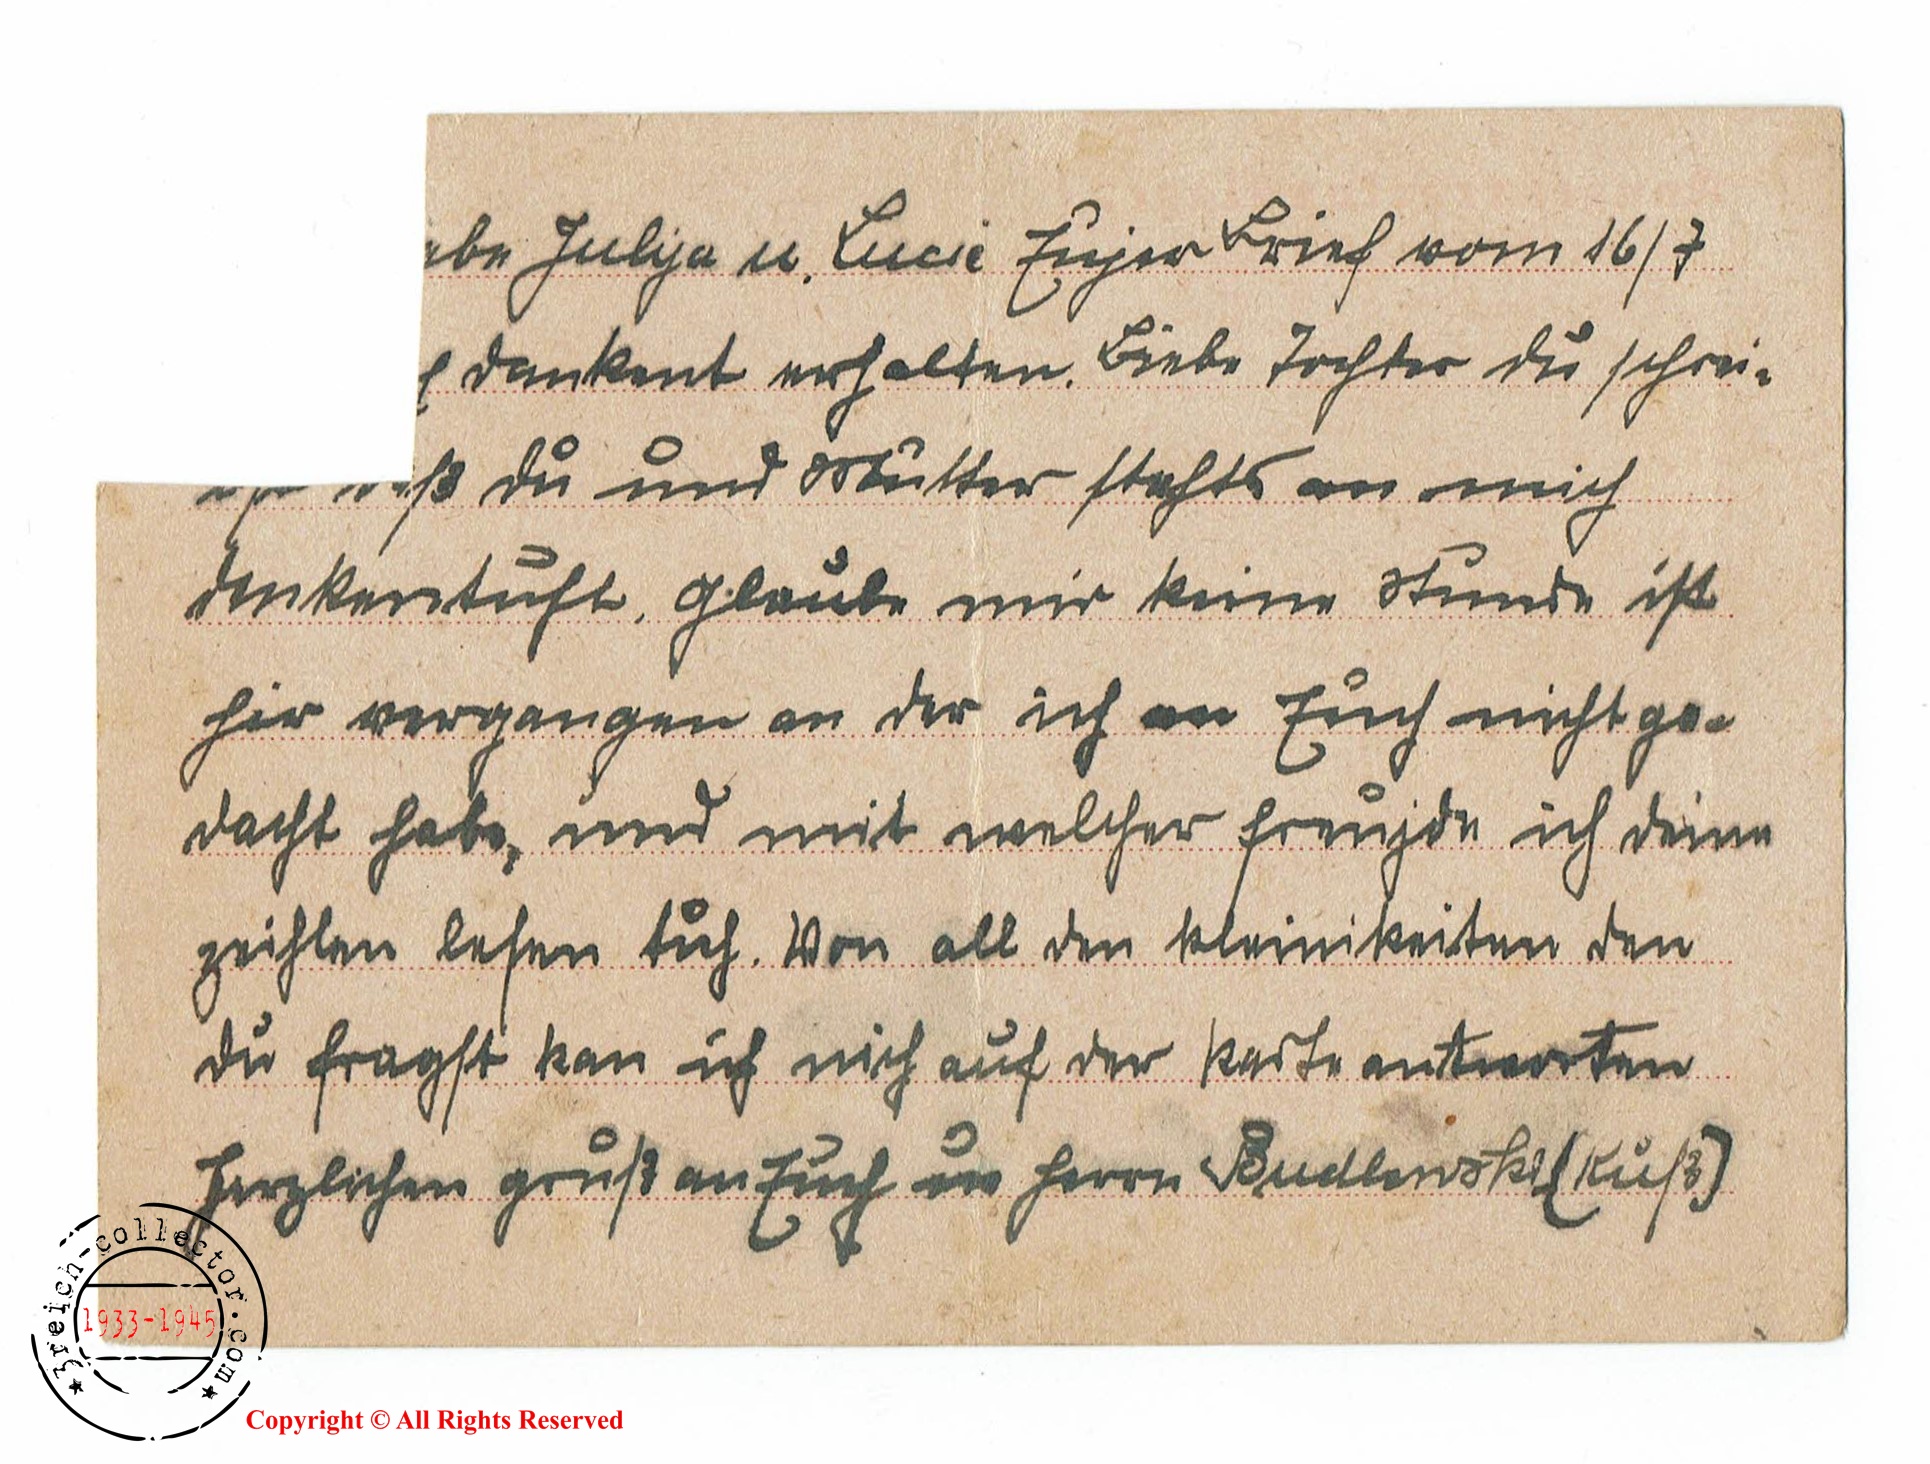 ebe Julija u. Lucie Eujer Brief vom 16/7
dankent erhalten. Liebe Tochter du schrei-
daß du und Mutter stehts an mich
denkentuht, glaube mir keine Stunde ist
hir vergangen an der ich an Euch nicht ge-
dacht habe, und mit welcher freujde ich deine
zeihlen lesen tuh. Von all den kleinikeiten den
du fragst kan ich nich auf der karte antworten
Herzlichen gruß an Euch un Herrn Budlewski (Kuß)
3reich-collector.com
1933-1945
Copyright © All Rights Reserved